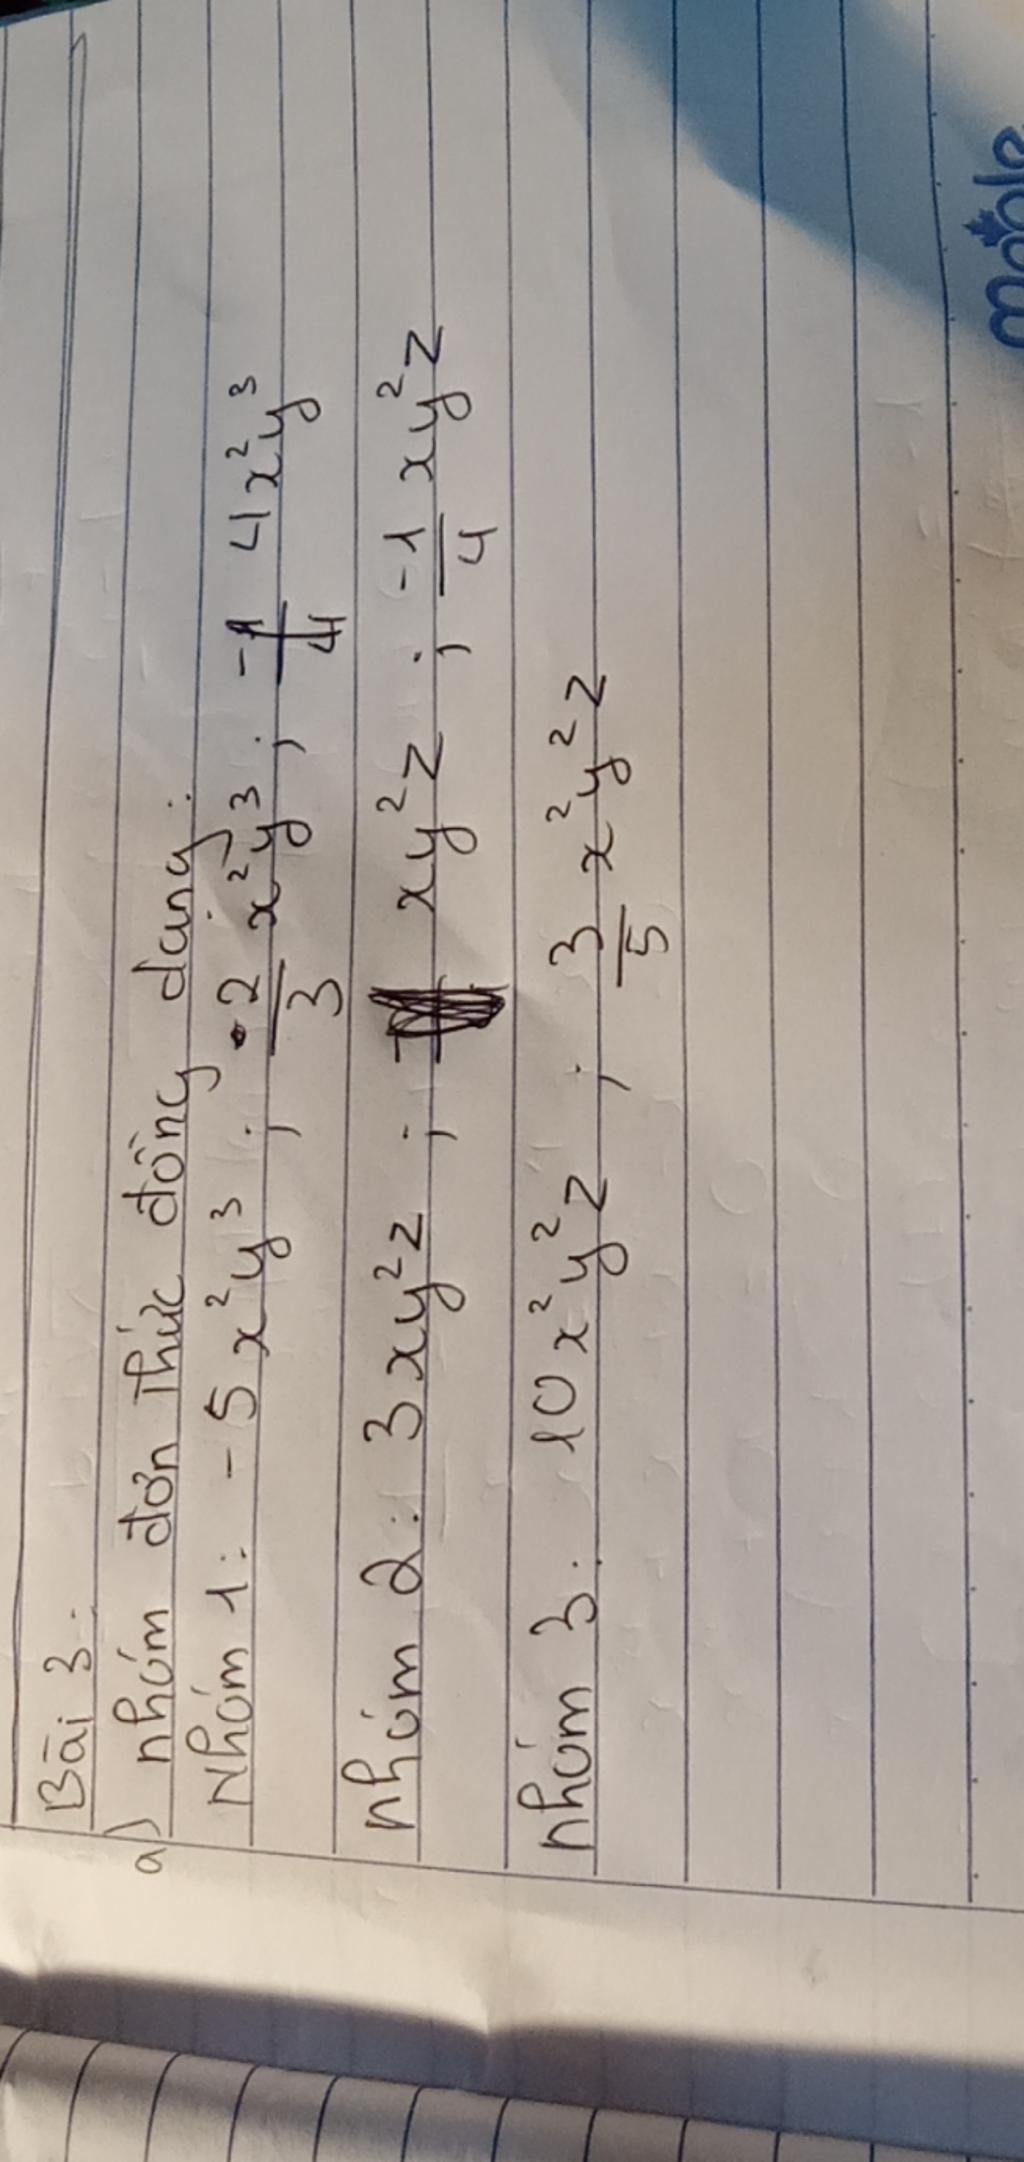 Bài 3:
a) nhóm đơn thức đồng dạng:
Nhóm 1: -5x²y³ ; -2/3 x²y³ ; 4x²y³
nhóm 2: 3xy²z ; xy²z ; -1/4 xy²z
nhóm 3: 10x²y²z ; 3/5 x²y²z
maple